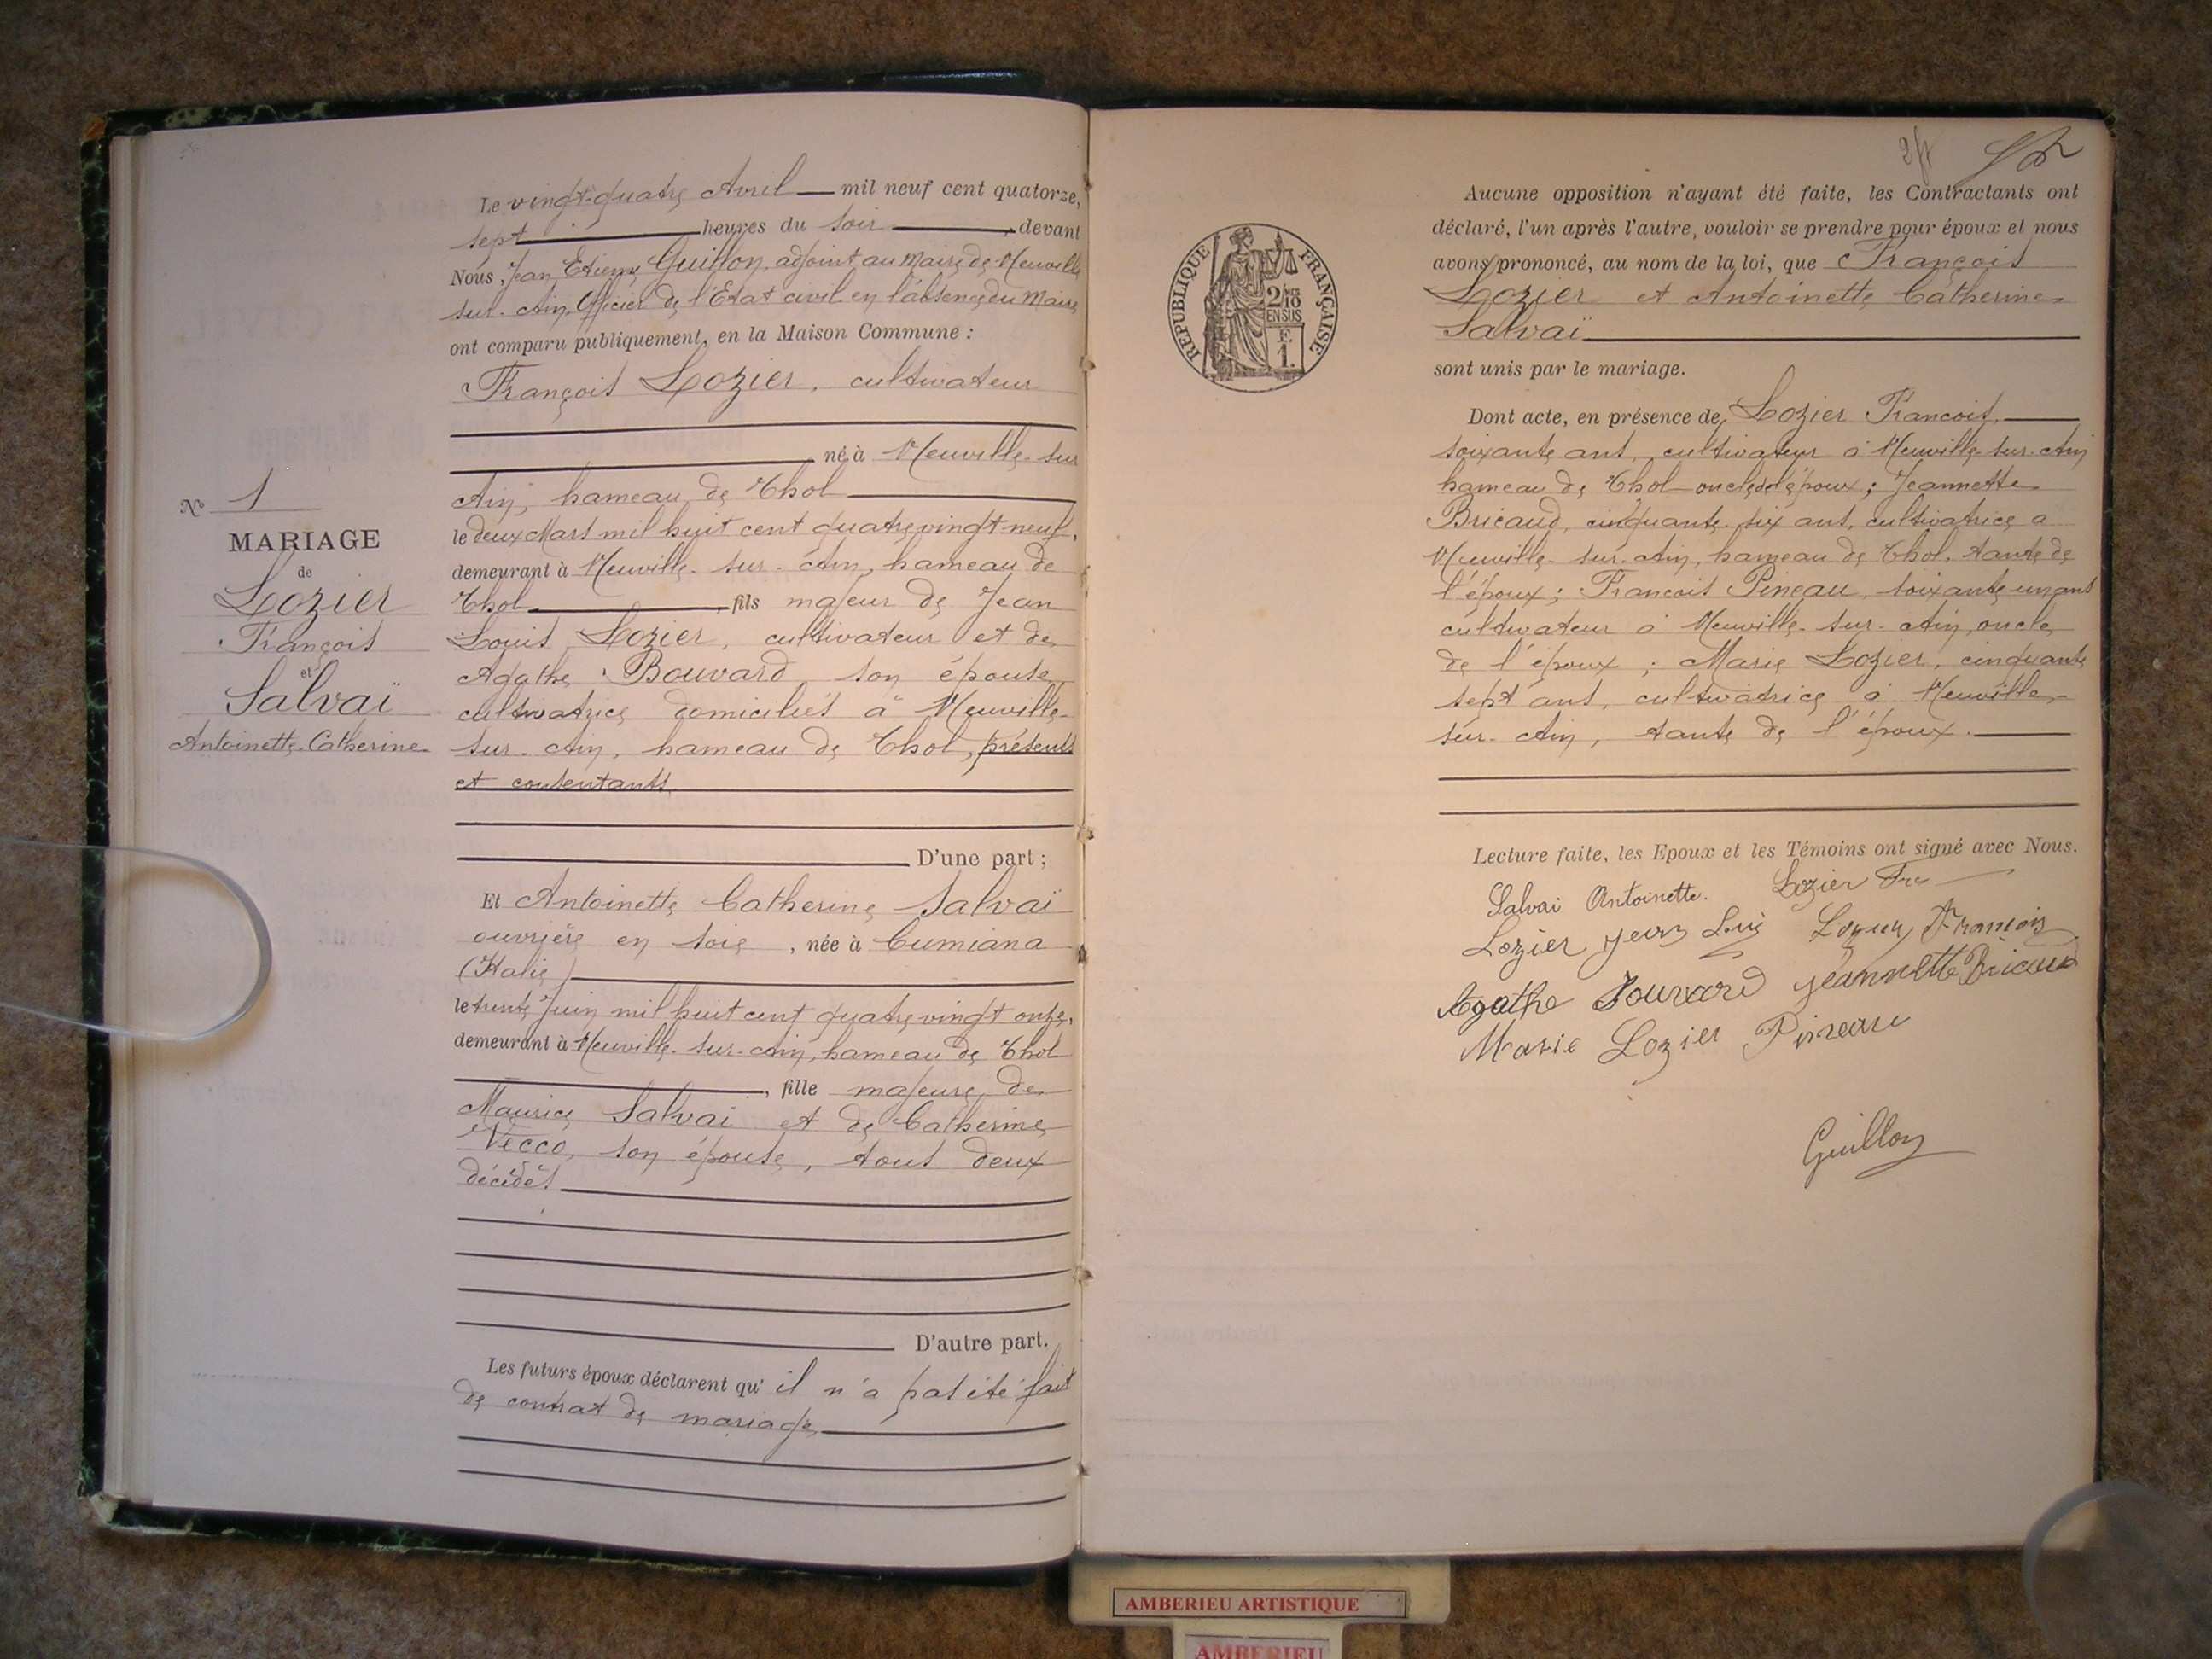 N° 1
MARIAGE
de
Lozier
François
et
Salvaï
Antoinette Catherine
Le vingt-quatre Avril mil neuf cent quatorze,
sept heures du soir, devant
Nous, Jean Etienne Guillon, adjoint au Maire de Neuville
sur-Ain, Officier de l'Etat civil en l'absence du Maire
ont comparu publiquement, en la Maison Commune :
François Lozier, cultivateur
né à Neuville-sur
Ain, hameau de Thol
le deux Mars mil huit cent quatre vingt-neuf,
demeurant à Neuville-sur-Ain, hameau de
Thol, fils majeur de Jean
Louis Lozier, cultivateur et de
Agathe Bouvard son épouse
cultivatrice domiciliés à Neuville-
sur-Ain, hameau de Thol, présents
et consentants
D'une part ;
Et Antoinette Catherine Salvaï
ouvrière en soie, née à Cumiana
(Italie)
le trente Juin mil huit cent quatre vingt onze,
demeurant à Neuville-sur-Ain, hameau de Thol
, fille majeure de
Maurice Salvaï et de Catherine
Vecco, son épouse, tous deux
décédés
D'autre part.
Les futurs époux déclarent qu'il n'a pas été fait
de contrat de mariage
REPUBLIQUE FRANÇAISE
2/10
EN SUS
E
1.
Aucune opposition n'ayant été faite, les Contractants ont
déclaré, l'un après l'autre, vouloir se prendre pour époux et nous
avons prononcé, au nom de la loi, que François
Lozier et Antoinette Catherine
Salvaï
sont unis par le mariage.
Dont acte, en présence de Lozier Francois,
soixante ans, cultivateur à Neuville-sur-Ain
hameau de Thol oncle de l'époux ; Jeannette
Bricaud, cinquante-six ans, cultivatrice a
Neuville-sur-Ain, hameau de Thol, tante de
l'époux ; Francois Pineau, soixante un ans
cultivateur à Neuville-sur-Ain, oncle
de l'époux ; Marie Lozier, cinquante
sept ans, cultivatrice à Neuville-
sur-Ain, tante de l'époux.
Lecture faite, les Epoux et les Témoins ont signé avec Nous.
Salvai Antoinette. Lozier Frc
Lozier Jean Luis Lozier François
Agathe Bouvard Jeannette Bricaud
Marie Lozier Pineau
Guillon
AMBERIEU ARTISTIQUE
AMBERIEU